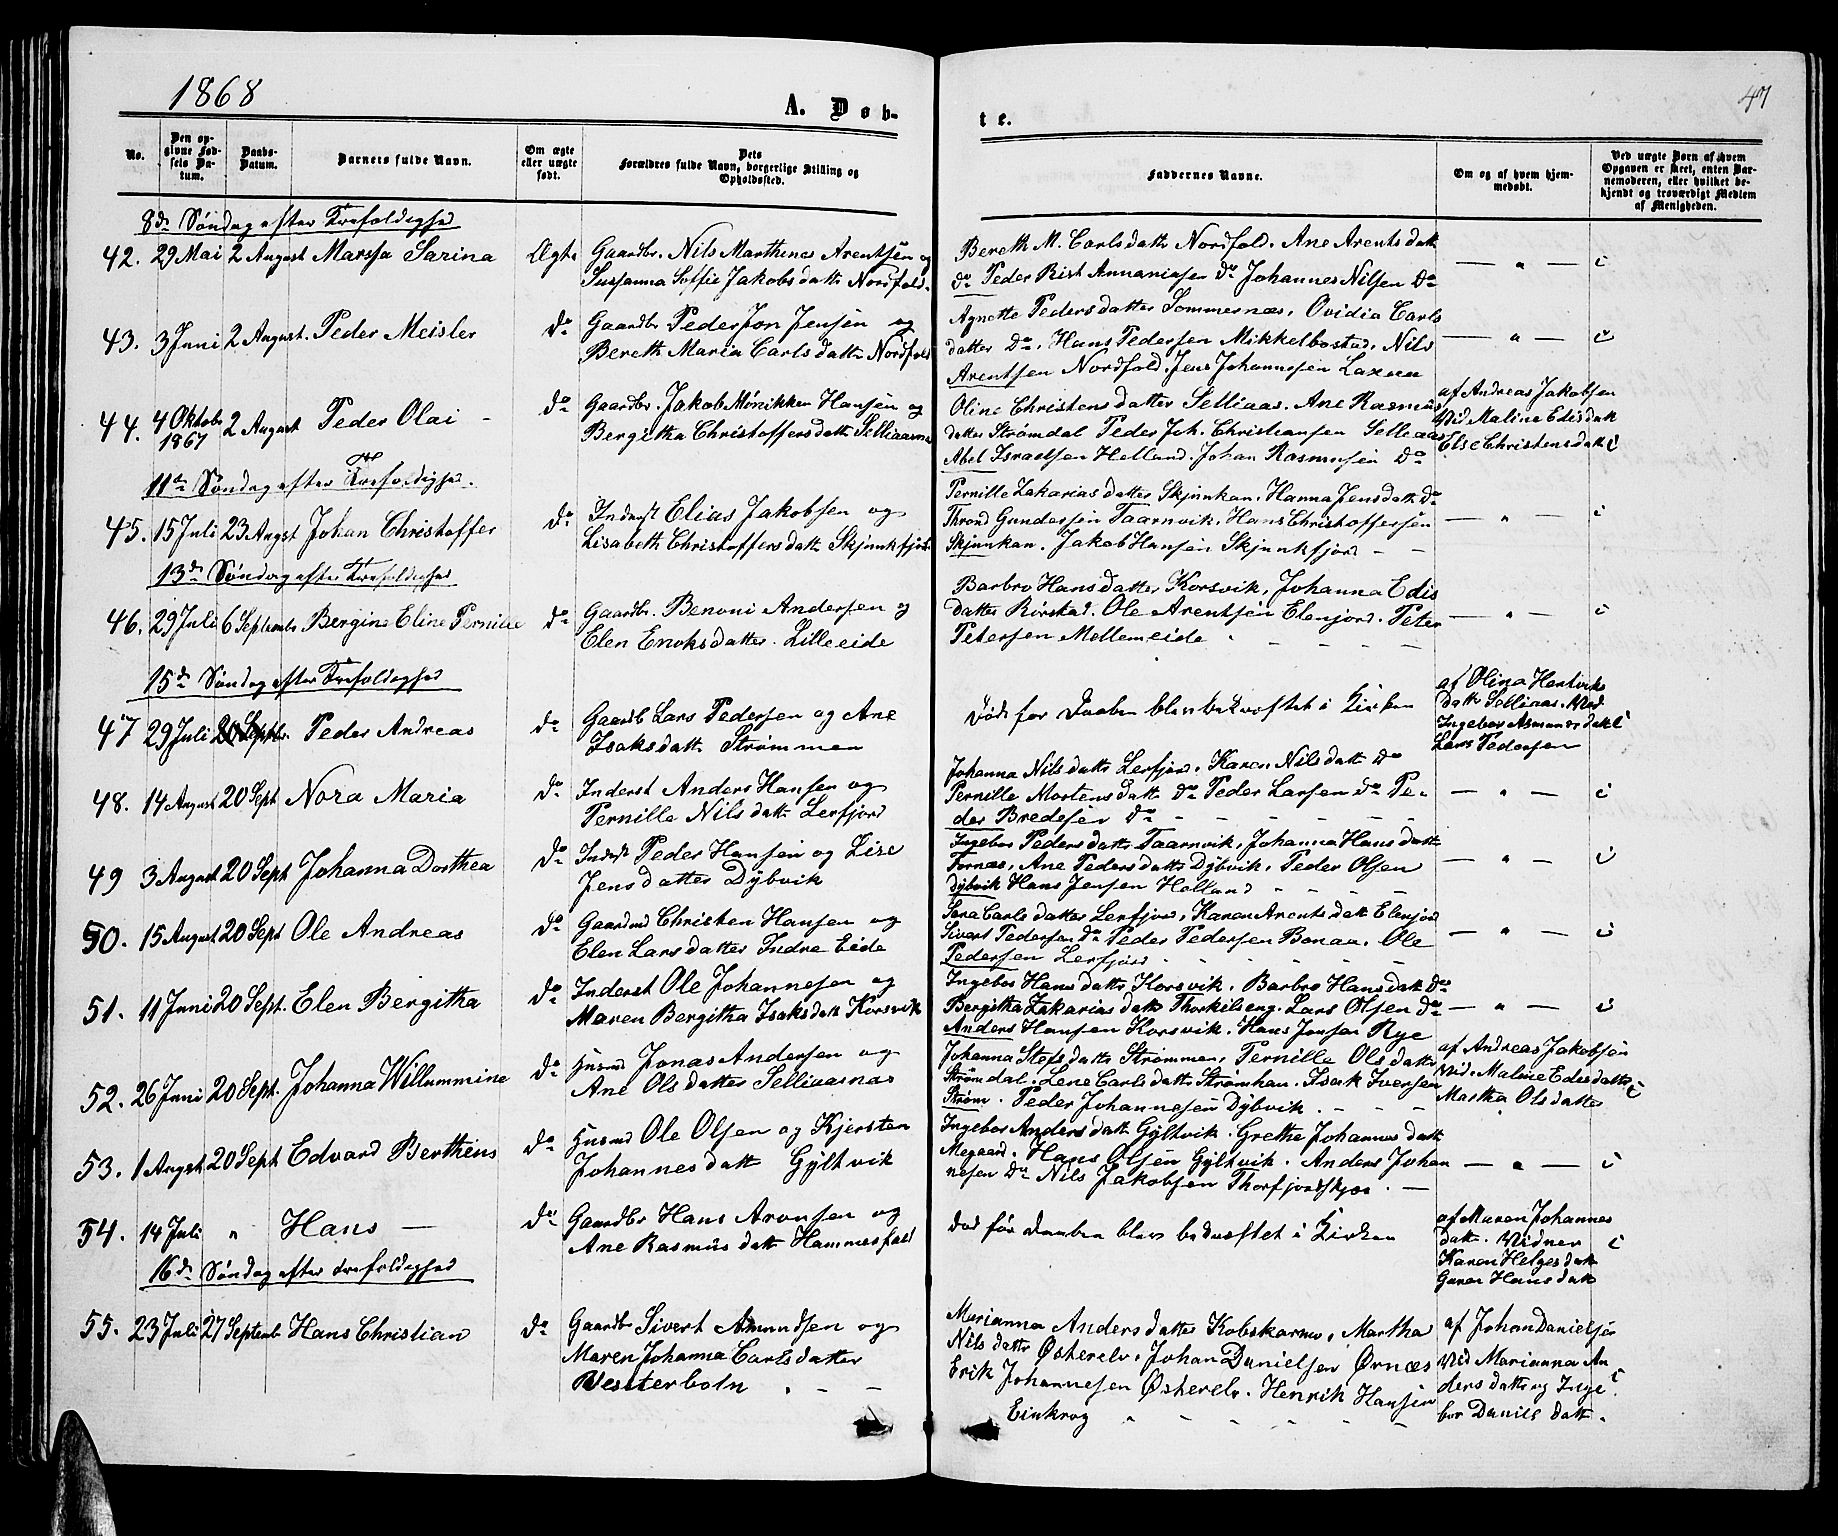 1868
A. Døb-
te.
47
No.
Den opgivne Fødsels Datum.
Daabs-Datum.
Barnets fulde Navn.
Om ægte eller uægte født.
Dets Forældres fulde Navn, borgerlige Stilling og Opholdssted.
Faddernes Navne.
Om og af hvem hjemmedøbt.
Ved uægte Børn af hvem Opgaven er skeet, enten Barnemoderen, eller hvilket bekjendt og troværdigt Medlem af Menigheden.
8de Søndag efter Trefoldighed
42. 29 Mai 2 August Sarina Ægte Gaardbr. Nils Marthenes Arentsen og
Sussanna Soffie Jakobsdatt Nordfold.
Bereth M. Carlsdatt Nordfold. Ane Arentsdatt
do Peder Rist Annaniasen do Johannes Nilsen do
— " — i
43. 3 Juni 2 August. Peder Meisler do Gaardbr Peder Jon Jensen og
Bereth Maria Carlsdatt Nordfold
Agnette Pedersdatter Sommernæs, Ovidia Carls
datter do. Hans Pedersen Mikkelbostad. Nils
Arentsen Nordfold. Jens Johannesen Laxaa
— " — i
44. 4 Oktob 1867 2 August Peder Olai - do Gaardbr. Jakob Mønikken Hansen og
Bergitha Christoffersdatt Selliaarnæ
Oline Christensdatter Selliaas. Ane Rasmus
datter Strømdal Peder Joh. Christiansen Selleaas
Abel Israelsen Helland. Johan Rasmusen do
af Andreas Jakobsen
Vid Maline Edisdatt
Else Christensdatt i
11te Søndag efter Trefoldighed.
45. 15 Juli 23 Augst Johan Christoffer do Inderst Elias Jakobsen og
Lisabeth Christoffersdatt Skjunkfjord
Pernille Zakariasdatter Skjunkan. Hanna Jensdatt do
Thrond Gundersen Taarnvik. Hans Christoffersen
Skjunkan. Jakob Hansen Skjunkfjord - -
— " — i
13de Søndag efter Trefoldighed
46. 29 Juli 6 Septembr Bergine Eline Pernille do Gaardbr. Benoni Andersen og
Elen Enoksdatter. Lilleeide
Barbro Hansdatter Korsvik, Johanna Edis
datter Rørstad. Ole Arentsen Elenjord. Peter
Petersen Mellemeide " - - - -
— " — i
15de Søndag efter Trefoldighed
47 29 Juli 20 Septbr. Peder Andreas do Gaardb Lars Pedersen og Ane
Isaksdatt Strømmen
Døde før Daaben blev bekræftet i Kirken
af Olina Hentriks
datt Selliaas. Vid
Lars Pedersen
i
48. 14 August 20 Sept Nora Maria do Inderst Anders Hansen og
Pernille Nilsdatt Lerfjord
Johanna Nilsdatt Lerfjord. Karen Nilsdatt do
Pernille Mortensdatt do Peder Larsen do Pe-
der Bredesen do - - - - -
— " — i
49 3 August 20 Sept Johanna Dorthea do Inderst Peder Hansen og Lise
Jensdatter Dÿbvik
Ingebor Pedersdatter Taarnvik, Johanna Hansdatt
Fornæs, Ane Pedersdatter Dÿbvik, Peder Olsen
Dÿbvik Hans Jensen Holland " - - -
— " — i
50. 15 August 20 Sept Ole Andreas do Gaardmd Christen Hansen og
Elen Larsdatter Indre Eide
Sara Carlsdatter Lerfjord, Karen Arentsdatt Elenjord
Sivert Pedersen do Peder Pedersen Bonaa. Ole
Pedersen Lerfjord - - - -
— " — i
51. 11 Juni 20 Sept. Elen Bergitha do Inderst Ole Johannesen og
Maren Bergitha Isaksdatt Korsvik
Ingebor Hansdatter Korsvik. Barbro Hansdatt do
Bergitha Zakariasdatt Thorkilseng. Lars Olsen do
Anders Hansen Korsvik. Hans Jensen Rye
— " — i
52. 26 Juni 20 Sept. Johanna Willummine do Husmd Jonas Andersen og
Ane Olsdatter Selliaarnas
Johanna Stefsdatt Strømmen, Pernille Olsdatter
Strømdal. Lene Carlsdatt Strømhan. Isak Iversen
Strøm. Peder Johannesen Dÿbvik. - - -
af Andreas Jakobsen
Vid. Maline Edisdatter
Martha Olsdatter
i
53. 1 Augst 20 Sept Edvard Berthius do Husmd Ole Olsen og Kjersten
Johannesdatt Gÿltvik
Ingebor Andersdatt Gÿltvik. Grethe Johannesdatt
Megaard. Hans Olsen Gÿltvik. Anders Johan
nesen do Nils Jakobsen Thorfjordskjær. —
— " — i
54. 14 Juli " Hans — do Gaardbr Hans Aronsen og
Ane Rasmusdatt Hammerfald
død før Daaben blev bekræftet i Kirken
af Maren Johannes
datt. Vidner
Karen Helgesdatt
Hansdatt
i
16de Søndag efter Trefoldighed
55. 23 Juli 27 Septemb Hans Christian do Gaardbr Sivert Amundsen og
Maren Johanna Carlsdatter
Vesterbotn " - -
Marianna Andersdatter Kobskarnes, Martha
Nilsdatter Østerelv. Johan Danielsen Ørnæs
Erik Johannesen Østerelv. Henrik Hansen
Einkrog " - - - -
af Johan Danielsen
Vid Marianna An
dersdatter og Inge
bor Danielsdatt.
i